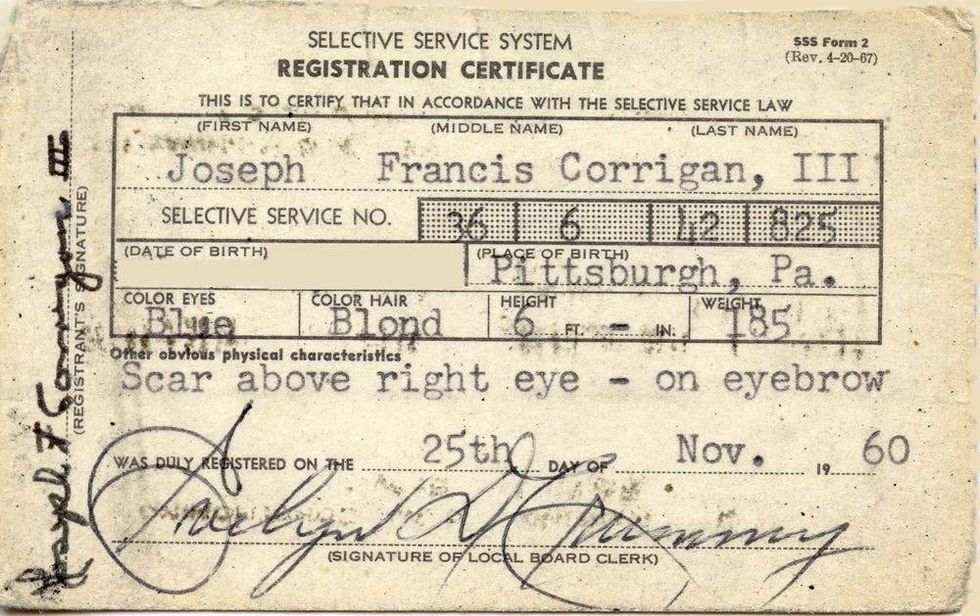 SELECTIVE SERVICE SYSTEM
SSS Form 2
(Rev. 4-20-67)
REGISTRATION CERTIFICATE
THIS IS TO CERTIFY THAT IN ACCORDANCE WITH THE SELECTIVE SERVICE LAW
(FIRST NAME) (MIDDLE NAME) (LAST NAME)
Joseph Francis Corrigan, III
SELECTIVE SERVICE NO. 36 6 42 825
(DATE OF BIRTH) (PLACE OF BIRTH)
Pittsburgh, Pa.
COLOR EYES COLOR HAIR HEIGHT WEIGHT
Blue Blond 6 FT. - IN. 185
Other obvious physical characteristics
Scar above right eye - on eyebrow
WAS DULY REGISTERED ON THE 25th DAY OF Nov. 19 60
(SIGNATURE OF LOCAL BOARD CLERK)
Joseph F Corrigan III
(REGISTRANT'S SIGNATURE)